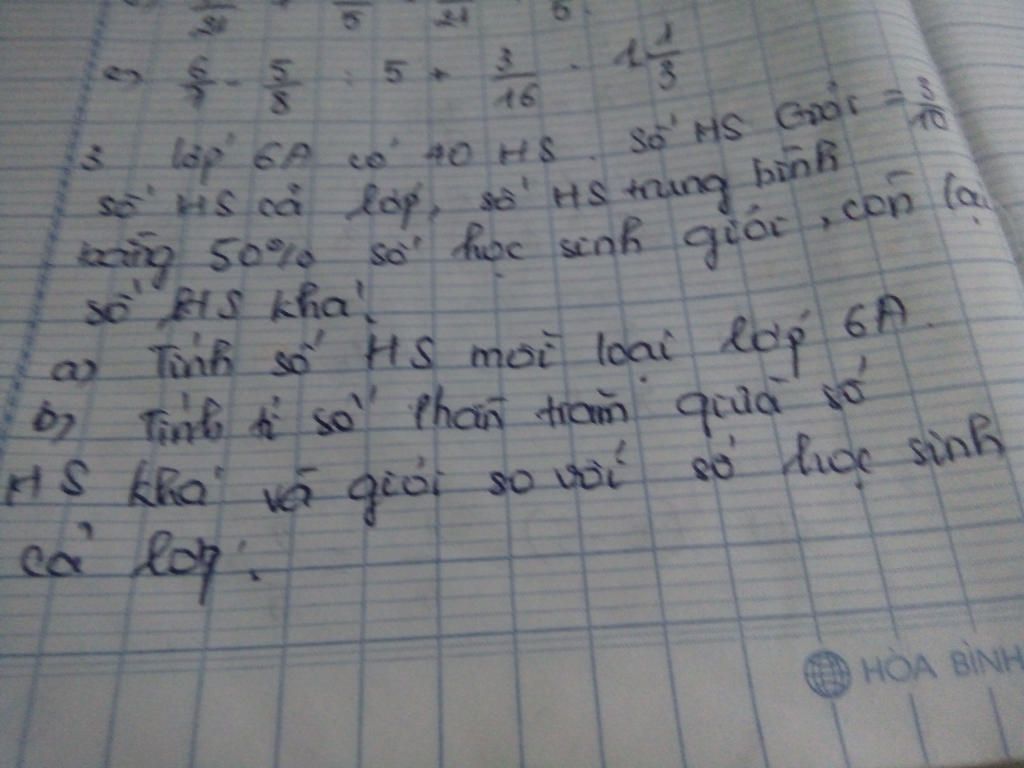 21 5 21 5.
c) 5/7 - 5/8 : 5 + 3/16 . 1 1/3
3 lớp 6A có 40 HS. Số HS Giỏi = 3/10
số HS cả lớp, số HS trung bình
bằng 50% số học sinh giỏi, còn lại
số HS khá.
a) Tính số HS mỗi loại lớp 6A.
b) Tính tỉ số phần trăm giữa số
HS khá và giỏi so với số học sinh
cả lớp.
HÒA BÌNH